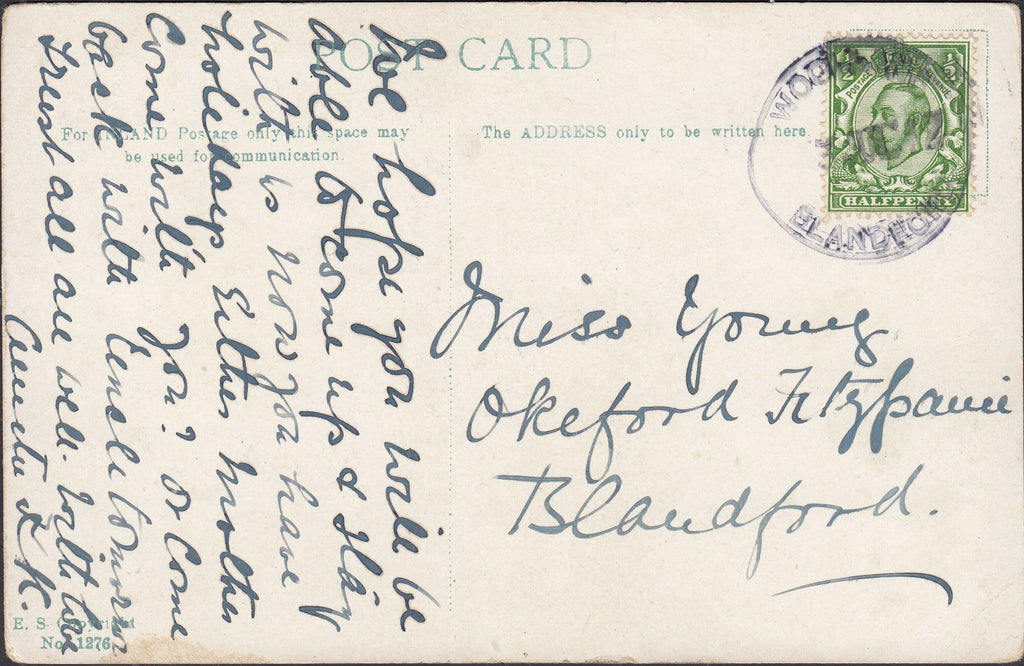 POST CARD
For INLAND Postage only this space may
be used for communication.
The ADDRESS only to be written here.
½
½
POSTAGE
REVENUE
HALFPENNY
BLANDFORD
Miss Young
Okeford Fitzpaine
Blandford.
We hope you will be
able to come up & stay
with us now you have
holidays Either Mother
come with you? or come
back with Uncle tomorrow
Trust all are well. With love
Auntie F K.
E. S. Copyright
No. 1276